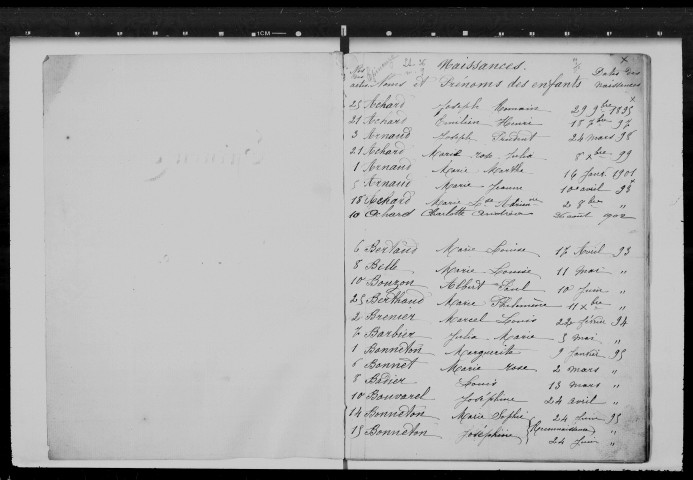 Naissances.
Nos Noms et Prénoms des enfants Dates des naissances
25 Achard Joseph Romain 29 9bre 1895
21 Achard Emilien Henri 18 7bre 97
3 Arnaud Joseph 24 mars 98
21 Achard Marie rose Julia 8 Xbre 99
1 Arnaud Marie Marthe 16 Janv. 1901
5 Arnaud Marie Jeanne 10 avril
18 Achard Marie 28 8bre "
10 Achard Charlotte août 1902
6 Bertaud Marie Louise 17 Avril 93
8 Belle Marie Louise 11 mai "
10 Bouzon Albert Paul 10 Juin "
25 Berthaud Marie Philomène 11 Xbre "
2 Brenier Marcel Louis 22 févr 94
7 Barbier Julia Marie 5 mai "
1 Bonneton Marguerite 9 Janvier 95
6 Bonnet Marie rose 2 mars "
8 Bedier Louis 13 mars "
10 Bouvarel Joséphine 24 avril "
14 Bonneton Marie Sophie 24 Juin 95
15 Bonneton Joséphine (Reconnaissance) "
24 Juin "
1CM